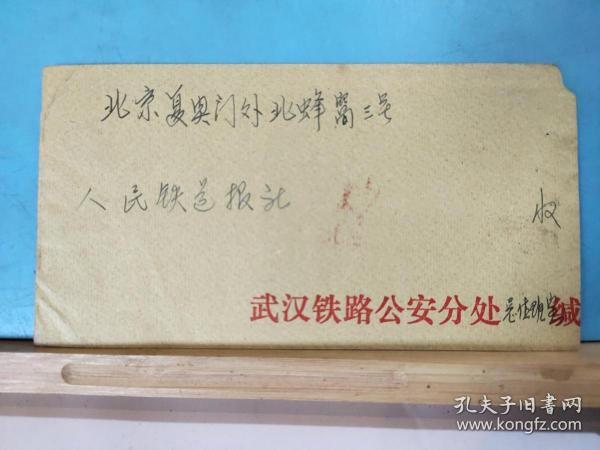 北京复兴门外北蜂窝三号
人民铁道报社
收
武汉铁路公安分处 缄
孔夫子旧书网
www.kongfz.com